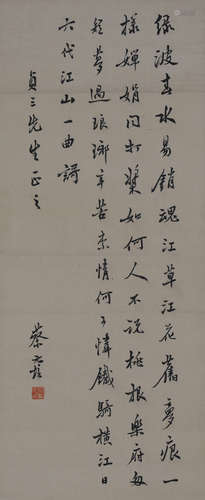 绿波春水易销魂江草江花旧梦痕一
様婵娟同打桨如何人不说桃根乐府每
疑梦过琅琊辛苦柰情何可怜铁骑横江日
六代江山一曲歌
贞三先生正之
蔡元培